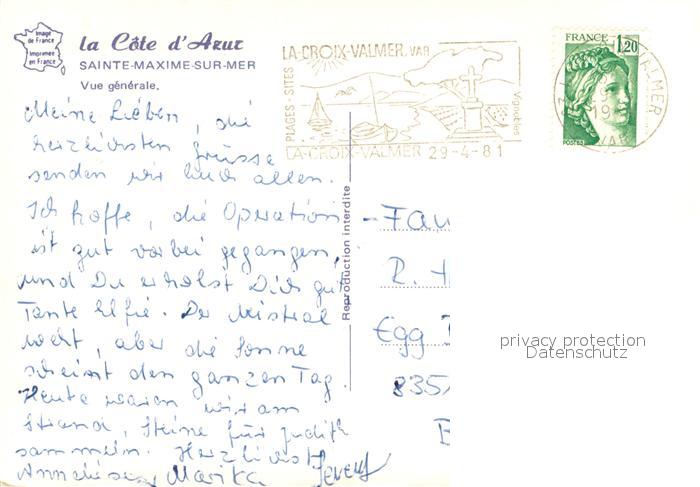 Image
de France
Imprimée
en France
la Côte d'Azur
SAINTE-MAXIME-SUR-MER
Vue générale.
PLAGES - SITES
LA-CROIX-VALMER. VAR
Vignobles
LA-CROIX-VALMER 29-4-81
FRANCE
1,20
POSTES
VALMER
VAR
Reproduction interdite
Meine Lieben, die
herzlichsten Grüsse
senden wir Euch allen.
Ich hoffe, die Operation
ist gut vorbei gegangen,
und Du erholst Dich gut
Tante Elfie. Der Mistral
weht, aber die Sonne
scheint den ganzen Tag.
Heute waren wir am
Strand, Steine für Judith
sammeln. Herzlichst
Marika
- Fam
R. H
Egg
835
privacy protection
Datenschutz